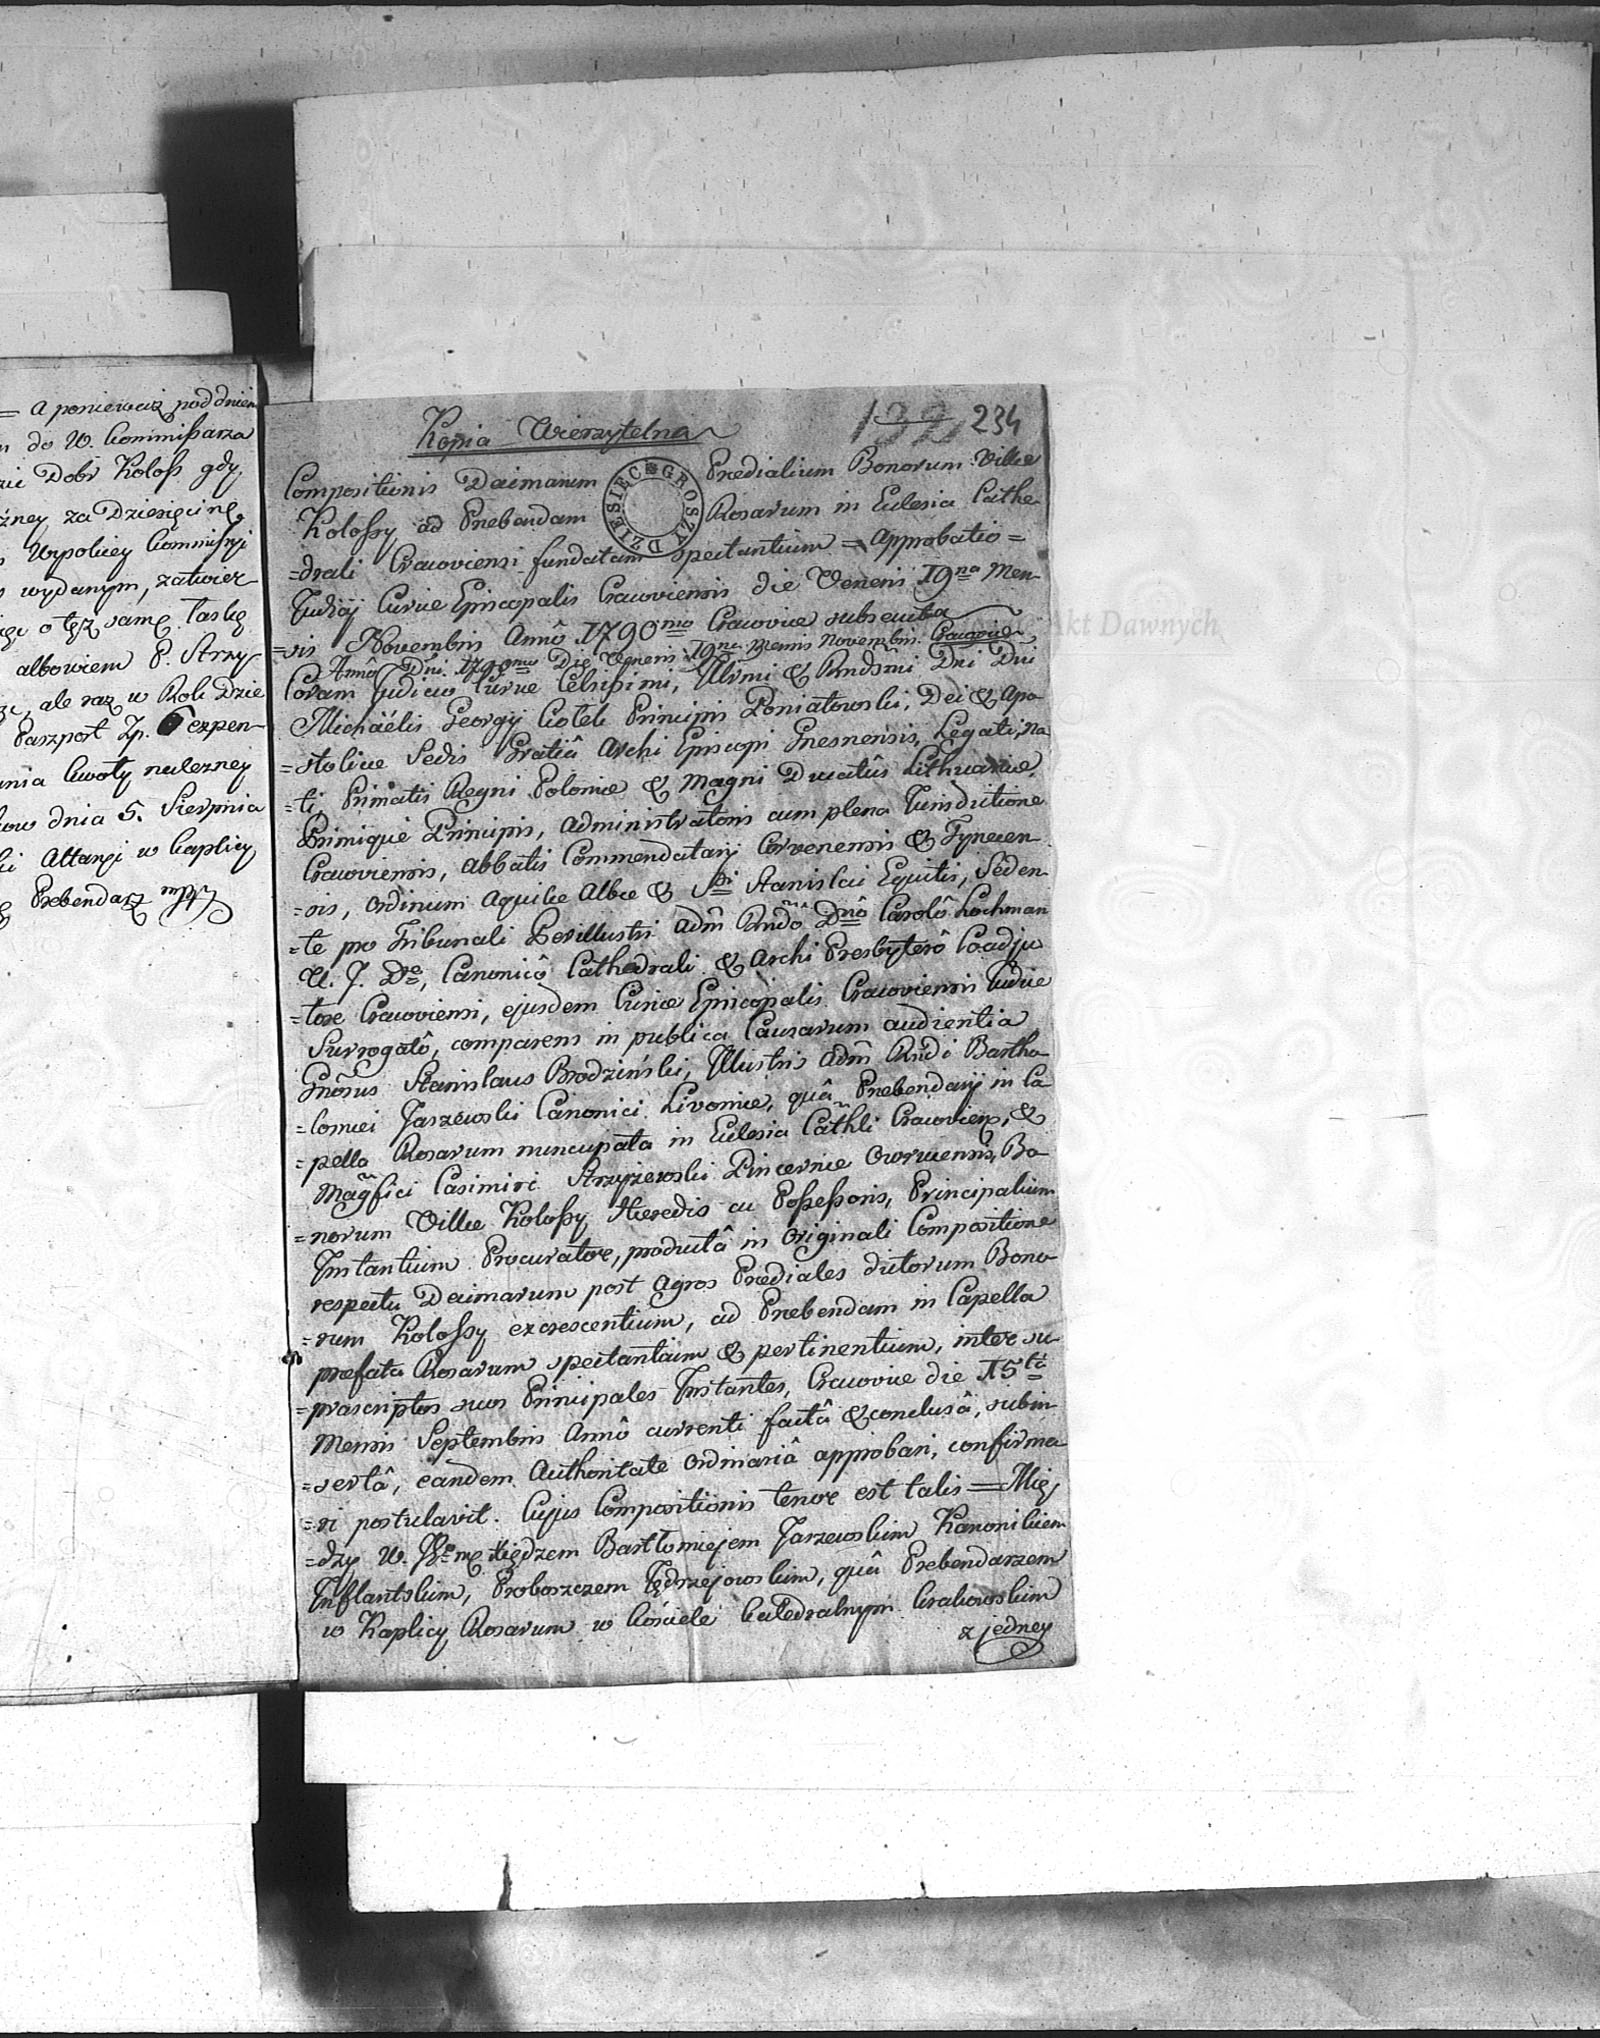 = a ponieważ pod dniem
do W. Kommissarza
Dobr Koloss gdy
za Dziesięcinę
Kommissyi
wydanym, zatwier-
o tęż samę Taskę
albowiem P. Strzy-
ale raz w Rok Dzie
Paszport Zp. 6 expen-
Kwoty należney
dnia 5. Sierpnia
Altaryi w Kaplicy
Prebendarz mpp
Kopia Wierzytelna
132 234
DZIESIĘC GROSZY
Compositionis Decimarum Prædialium Bonorum Villæ
Kolossy ad Prebendam Rosarum in Eclesia Cathe-
=drali Cracoviensi fundatam spectantium = Approbatio =
Judicij Curiæ Episcopalis Cracoviensis die Veneris 19na Men-
=sis Novembris Annô 1790mo Cracoviæ subsecuta
Annô Dni. 1790mo Die Veneris 19na Mensis Novembris Cracoviæ
Coram Judicio Curiæ Celsissimi, Illrmi & Rndsmi Dni Dni
Michaëlis Georgij Ciołek Principis Poniatowski, Dei & Apo-
=stolicæ Sedis Gratiâ Archi Episcopi Gnesnensis, Legati, na-
=ti, Primatis Regni Poloniæ & Magni Ducatûs Lithuaniæ,
Primique Principis, Administratoris cum plena Jurisdictione
Cracoviensis, Abbatis Commendatarij Czrvenensis & Tynecen-
=sis, Ordinum Aquilæ Albæ & Sti Stanislai Equitis, Seden-
=te pro Tribunali Perillustri Adm Rndô Dnô Carolô Lochman
U. J. Dre, Canonicô Cathedrali & Archi Presbyterô Coadju-
=tore Cracoviensi, ejusdem Curiæ Episcopalis Cracoviensis Judice
Surrogatô, comparens in publica Causarum audientia
Gnosus Stanislaus Brodziński, Illustris Adm Rndi Bartho-
=lomei Jaszewski Canonici Livoniæ, quâ Prebendarij in Ca-
=pella Rosarum nuncupata in Eclesia Cathli Cracovien, &
Magfici Casimiri Strzyżewski Pincernæ Owrucensis, Bo-
=norum Villæ Kolossy Hæredis ac Possessoris, Principalium
Instantium Procuratore, productâ in Originali Compositione
respectu Decimarum post Agros Prædiales dictorum Bono-
=rum Kolossy excrescentium, ad Prebendam in Capella
præfata Rosarum spectantium & pertinentium, inter su-
=prascriptos suos Principales Instantes, Cracoviæ die 15ta
Mensis Septembris Annô currenti factâ & conclusâ, subin-
=sertâ, eandem Authoritate Ordinariâ approbari, confirma-
=ri postulavit. Cujus Compositionis tenor est talis = Mię-
=dzy W. Jmę Xiędzem Bartłomiejem Jarzewskim Kanonikiem
Inflantskim, Proboszczem Jędrzejowskim, quâ Prebendarzem
w Kaplicy Rosarum w Kościele Katedralnym Krakowskim
z jedney
Akt Dawnych